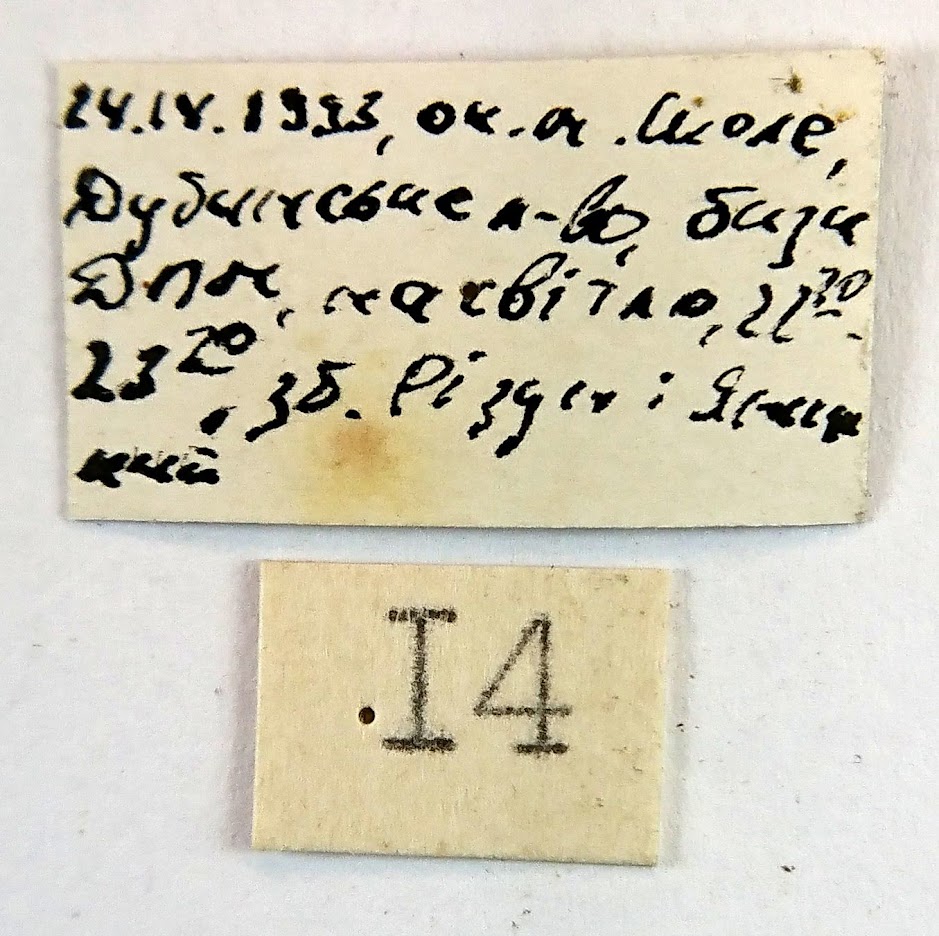 24.IV.1993, ок. с. Сколе,
Дубинське л-во, бази
ДПМ, на світло, 22²⁰-
23²⁰, зб. Різун і Яниц
ький
I4